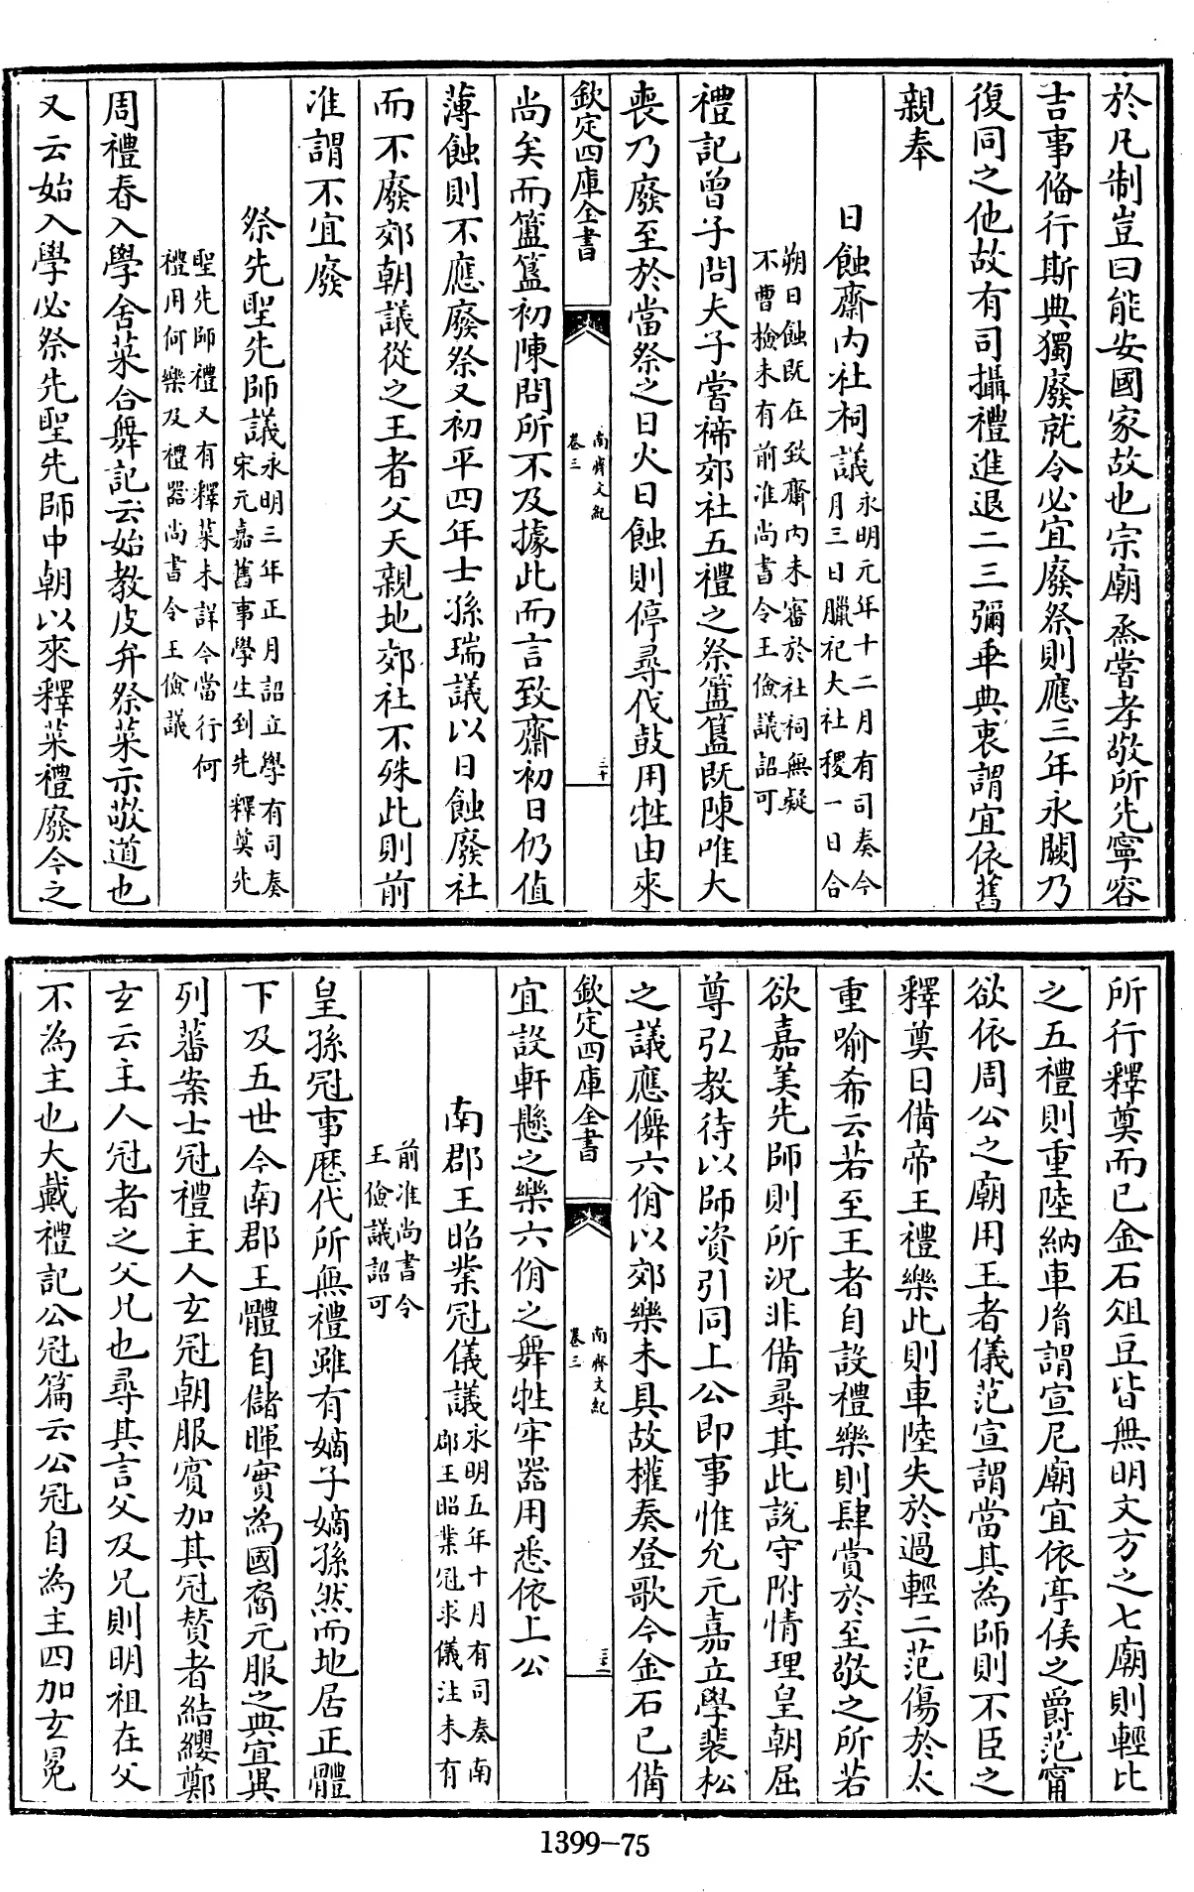 於凡制豈曰能安國家故也宗廟烝嘗孝敬所先寧容
吉事備行斯典獨廢就令必宜廢祭則應三年永闕乃
復同之他故有司攝禮進退二三彌乖典衷謂宜依舊
親奉
日蝕齋內社祠議永明元年十二月有司奏今
月三日臘祀大社稷一日合
朔日蝕既在致齋內未審於社祠無疑
不曹檢未有前准尚書令王儉議詔可
禮記曾子問夫子嘗禘郊社五禮之祭簠簋既陳唯大
喪乃廢至於當祭之日火日蝕則停尋伐鼓用牲由來
欽定四庫全書
南齊文紀
卷三
三十
尚矣而簠簋初陳問所不及據此而言致齋初日仍值
薄蝕則不應廢祭又初平四年士孫瑞議以日蝕廢社
而不廢郊朝議從之王者父天親地郊社不殊此則前
准謂不宜廢
祭先聖先師議永明三年正月詔立學有司奏
宋元嘉舊事學生到先釋奠先
聖先師禮又有釋菜未詳今當行何
禮用何樂及禮器尚書令王儉議
周禮春入學舍菜合舞記云始教皮弁祭菜示敬道也
又云始入學必祭先聖先師中朝以來釋菜禮廢今之
所行釋奠而已金石俎豆皆無明文方之七廟則輕比
之五禮則重陸納車胤謂宣尼廟宜依亭侯之爵范甯
欲依周公之廟用王者儀范宣謂當其為師則不臣之
釋奠日備帝王禮樂此則車陸失於過輕二范傷於太
重喻希云若至王者自設禮樂則肆賞於至敬之所若
欲嘉美先師則所況非備尋其此說守附情理皇朝屈
尊弘教待以師資引同上公即事惟允元嘉立學裴松
之議應儛六佾以郊樂未具故權奏登歌今金石已備
欽定四庫全書
南齊文紀
卷三
三十一
宜設軒懸之樂六佾之舞牲牢器用悉依上公
南郡王昭業冠儀議永明五年十月有司奏南
郡王昭業冠求儀注未有
前准尚書令
王儉議詔可
皇孫冠事歷代所無禮雖有嫡子嫡孫然而地居正體
下及五世今南郡王體自儲暉實為國裔元服之典宜異
列蕃案士冠禮主人玄冠朝服賓加其冠贊者結纓鄭
玄云主人冠者之父兄也尋其言父及兄則明祖在父
不為主也大戴禮記公冠篇云公冠自為主四加玄冕
1399-75